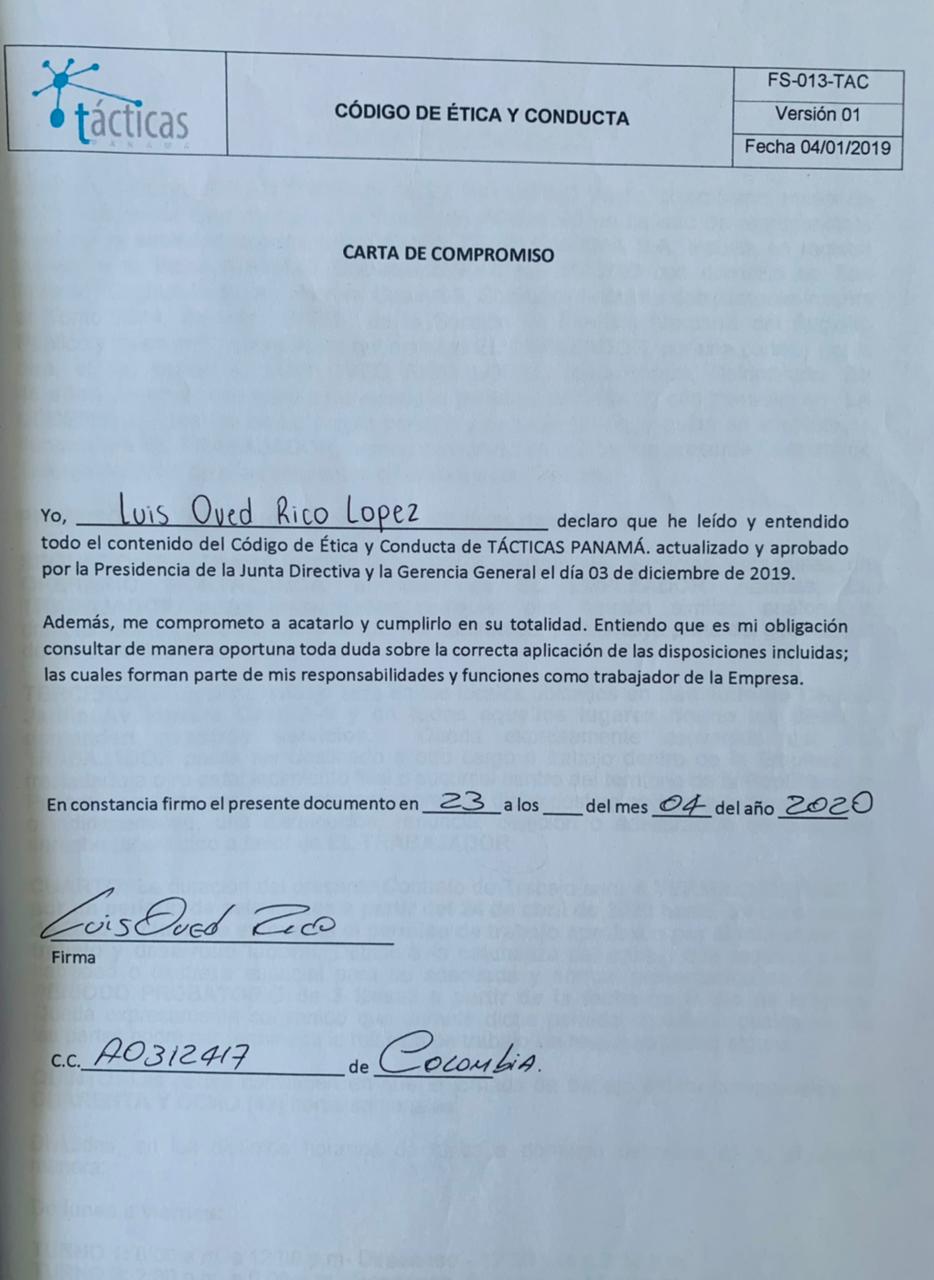 tácticas
PANAMÁ
CÓDIGO DE ÉTICA Y CONDUCTA
FS-013-TAC
Versión 01
Fecha 04/01/2019
CARTA DE COMPROMISO
Yo, Luis Oved Rico Lopez declaro que he leído y entendido
todo el contenido del Código de Ética y Conducta de TÁCTICAS PANAMÁ. actualizado y aprobado
por la Presidencia de la Junta Directiva y la Gerencia General el día 03 de diciembre de 2019.
Además, me comprometo a acatarlo y cumplirlo en su totalidad. Entiendo que es mi obligación
consultar de manera oportuna toda duda sobre la correcta aplicación de las disposiciones incluidas;
las cuales forman parte de mis responsabilidades y funciones como trabajador de la Empresa.
En constancia firmo el presente documento en 23 a los ____ del mes 04 del año 2020
Luis Oved Rico
Firma
C.C. A0312417 de Colombia.